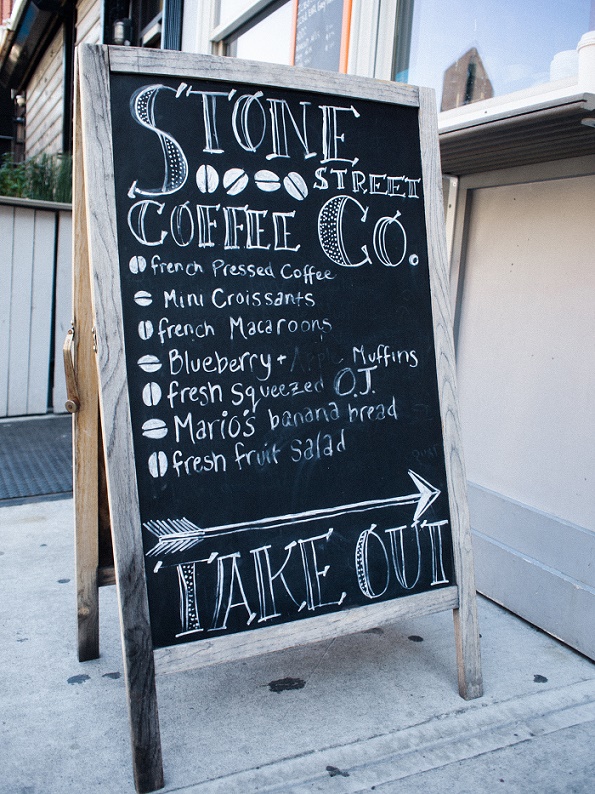 STONE
STREET
COFFEE Co.
french Pressed Coffee
Mini Croissants
french Macaroons
Blueberry + Apple Muffins
fresh squeezed O.J.
Mario's banana bread
fresh fruit salad
TAKE OUT